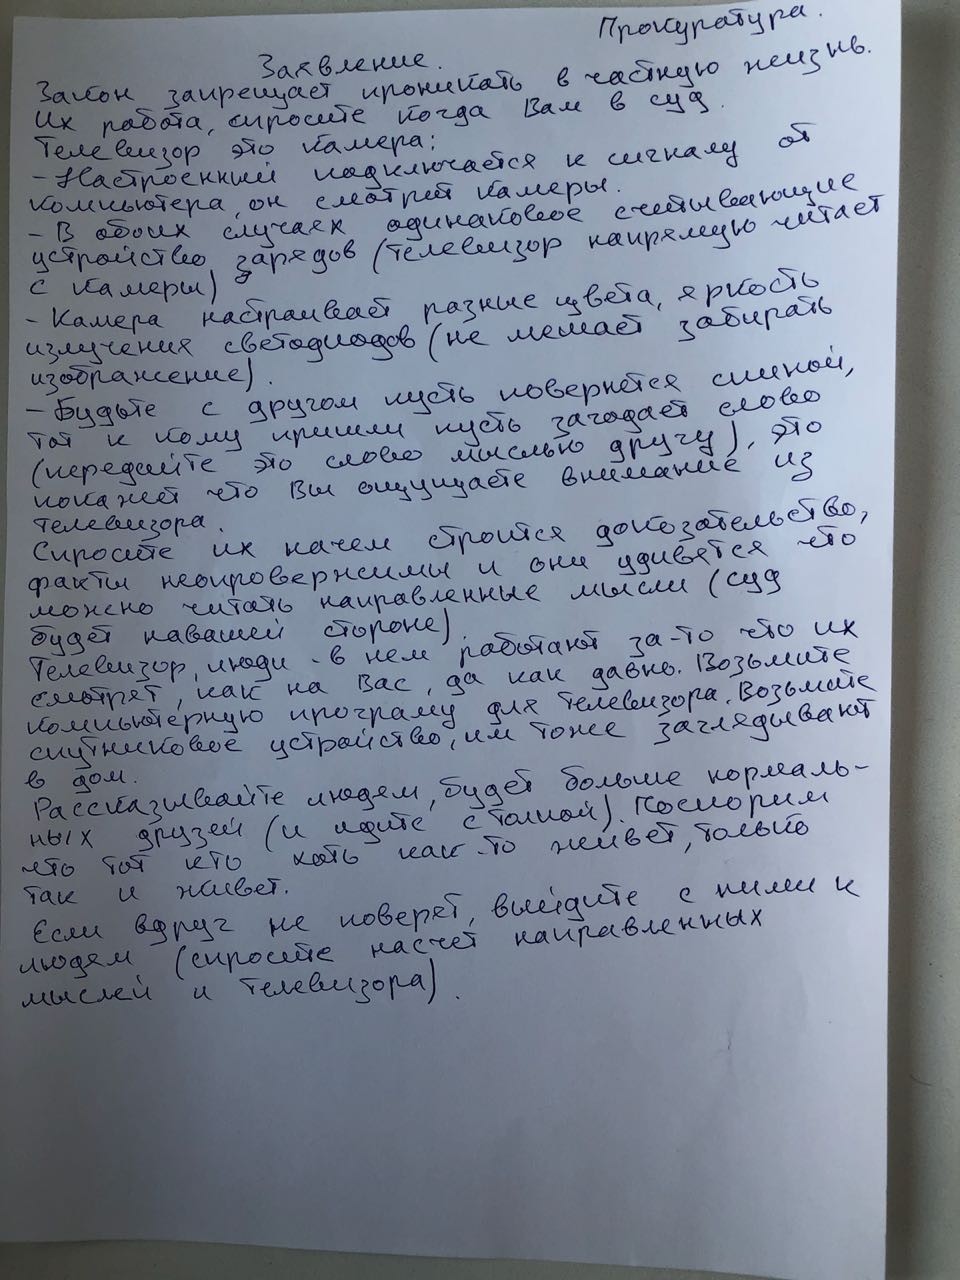 Прокуратура.
Заявление.
Закон запрещает проникать в частную жизнь.
Их работа, спросите когда Вам в суд.
Телевизор это камера:
- Настроенний подключается к сигналу от
компьютера, он смотрит камеры.
- В обоих случаях одинаковое считывающие
устройство зарядов (телевизор напрямую читает
с камеры)
- Камера настраивает разные цвета, яркость
излучения светодиодов (не мешает забирать
изображение).
- Будьте с другом пусть повернется спиной,
тот к кому пришли пусть загодает слово
(передайте это слово мыслью другу), это
покажет что Вы ощущаете внимание из
телевизора.
Спросите их начем строится доказательство,
факты неопровержимы и они удивятся что
можно читать направленные мысли (суд
будет навашей стороне).
Телевизор, люди в нем работают за-то что их
смотрят, как на Вас, да как давно. Возьмите
компьютерную програму для телевизора. Возьмите
спутниковое устройство, им тоже заглядывают
в дом.
Рассказывайте людем, будет больше нормаль-
ных друзей (и идите с толпой). Поспорим
что тот кто хоть как-то живет, только
так и живет.
Если вдруг не поверят, выйдите с ними к
людем (спросите насчет направленных
мыслей и телевизора).